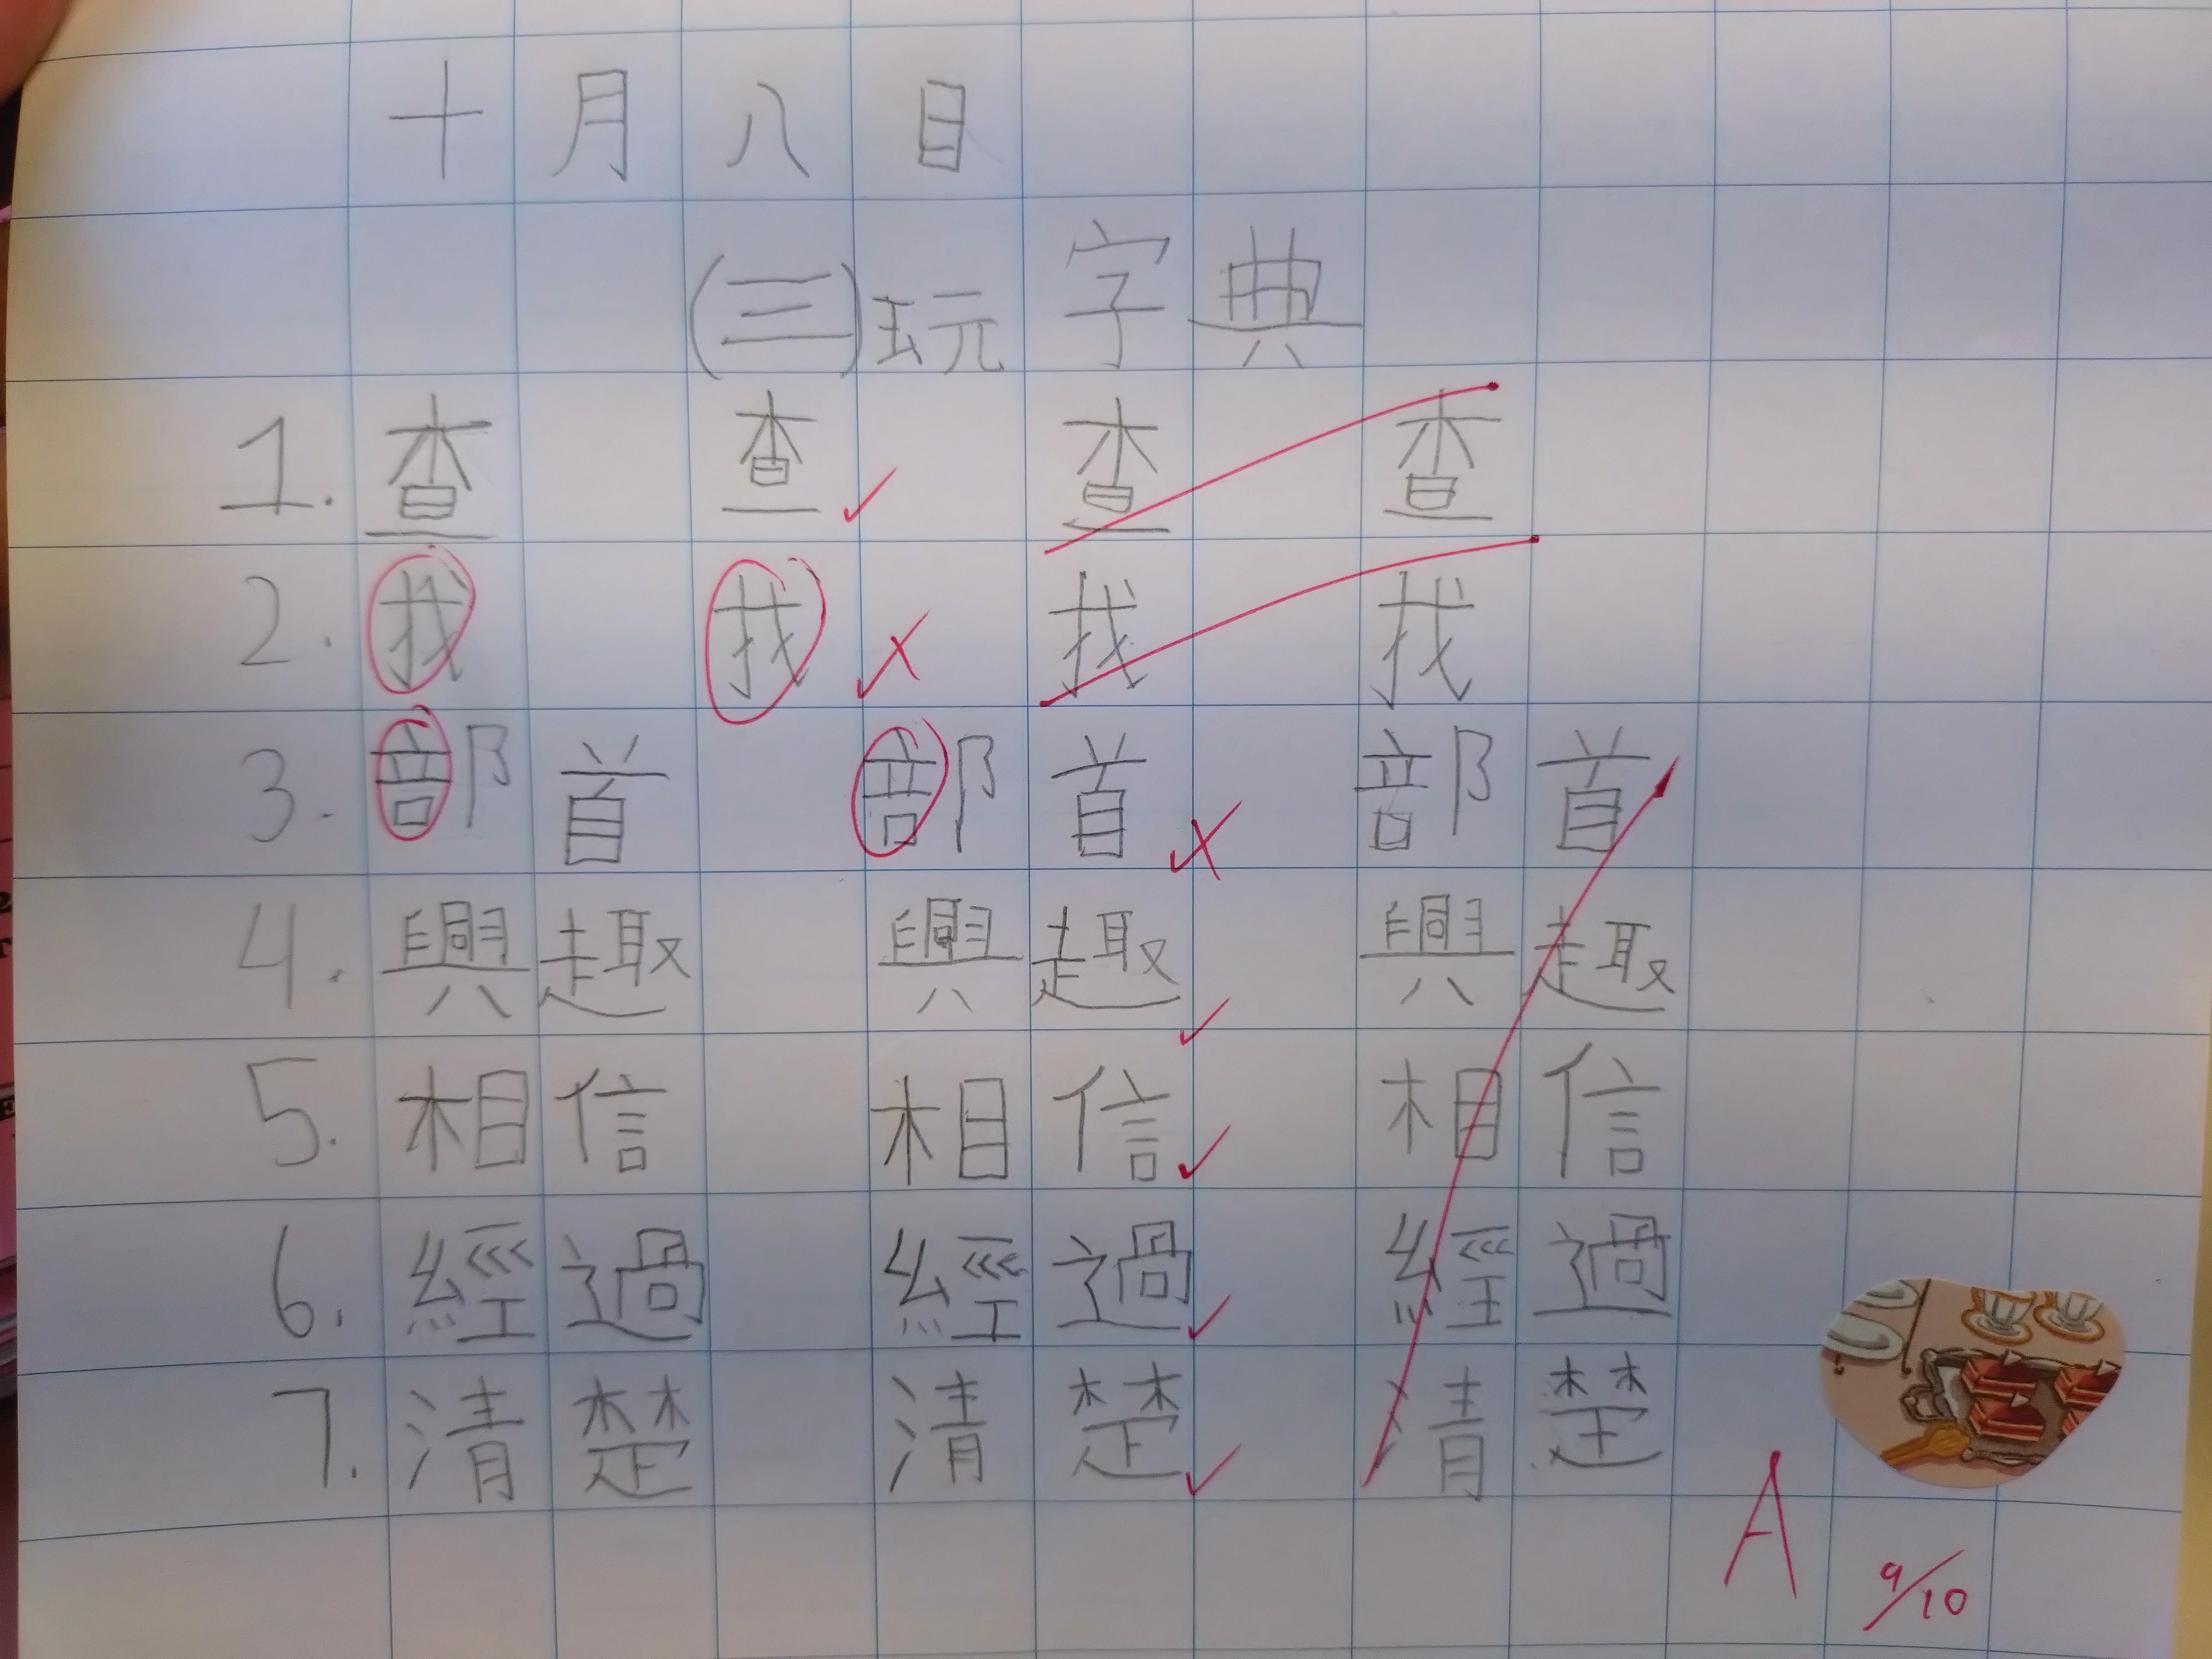 十月八日
(三)玩字典
1. 查 查 查 查
2. 找 找 找 找
3. 部首 部首 部首
4. 興趣 興趣 興趣
5. 相信 相信 相信
6. 經過 經過 經過
7. 清楚 清楚 清楚
A
9/10